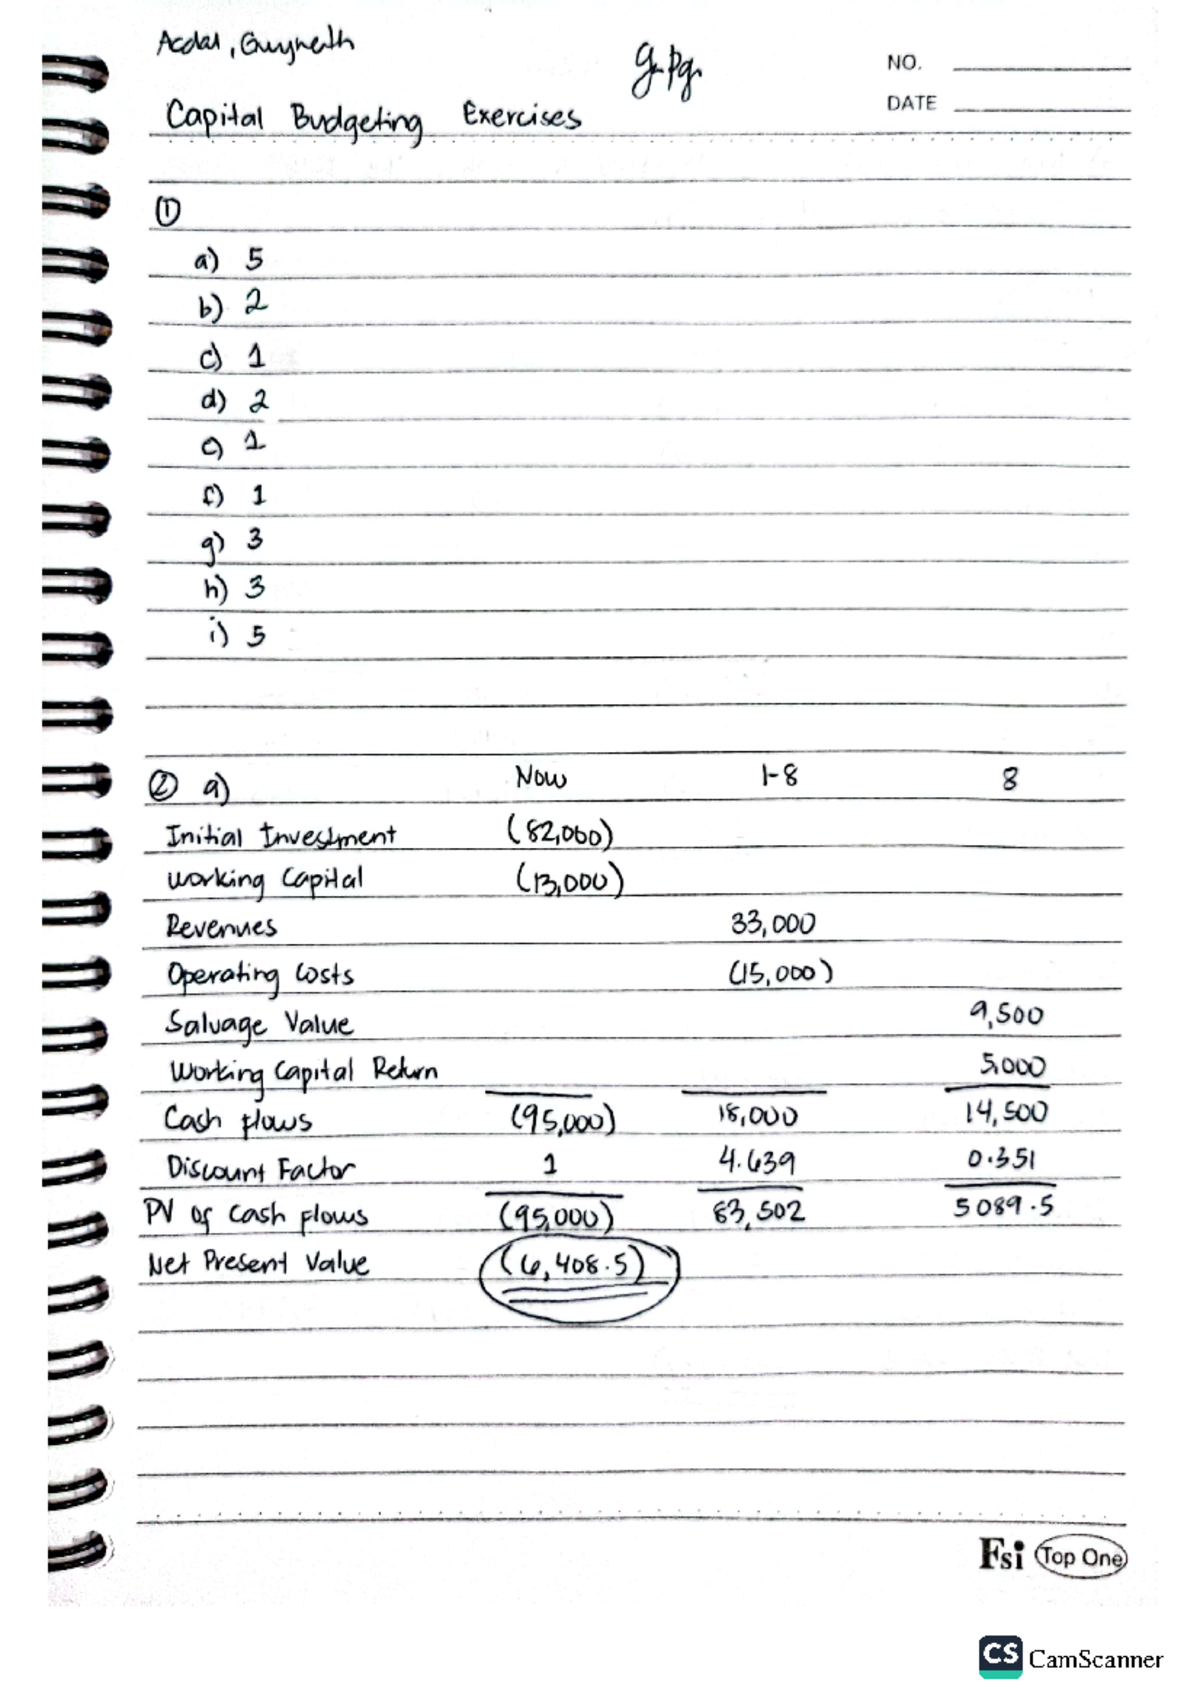 Acdal, Gwyneth
NO.
DATE
Capital Budgeting Exercises
①
a) 5
b) 2
c) 1
d) 2
e) 1
f) 1
g) 3
h) 3
i) 5
② a) Now 1-8 8
Initial Investment (82,000)
Working Capital (13,000)
Revenues 33,000
Operating Costs (15,000)
Salvage Value 9,500
Working Capital Return 5,000
Cash flows (95,000) 18,000 14,500
Discount Factor 1 4.639 0.351
PV of Cash flows (95,000) 83,502 5089.5
Net Present Value (6,408.5)
Fsi Top One
CS CamScanner